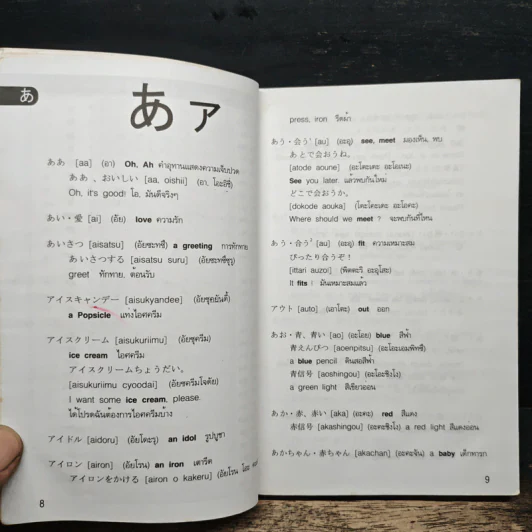 あ
あ ア
ああ [aa] (อา) Oh, Ah คำอุทานแสดงความเจ็บปวด
ああ 、おいしい [aa, oishii] (อา. โอะอิชี)
Oh, it's good! โอ. มันดีจริงๆ
あい・愛 [ai] (อัย) love ความรัก
あいさつ [aisatsu] (อัยซะทซึ) a greeting การทักทาย
あいさつする [aisatsu suru] (อัยซะทซึซุรุ)
greet ทักทาย. ต้อนรับ
アイスキャンデー [aisukyandee] (อัยซุคยันดี้)
a Popsicle แท่งไอศครีม
アイスクリーム [aisukuriimu] (อัยซุครีม)
ice cream ไอศครีม
アイスクリームちょうだい。
[aisukuriimu cyoodai] (อัยซุครีมโจดัย)
I want some ice cream, please.
ได้โปรดฉันต้องการไอศครีมบ้าง
アイドル [aidoru] (อัยโดะรุ) an idol รูปบูชา
アイロン [airon] (อัยโรน) an iron เตารีด
アイロンをかける [airon o kakeru] (อัยโรน โอะ
8
press, iron รีดผ้า
あう・会う¹ [au] (อะอุ) see, meet มองเห็น, พบ
あとで会おうね。
[atode aoune] (อะโตะเดะ อะโอเนะ)
See you later. แล้วพบกันใหม่
どこで会おうか。
[dokode aouka] (โดะโคะเดะ อะโอคะ)
Where should we meet ? จะพบกันที่ไหน
あう・合う² [au] (อะอุ) fit ความเหมาะสม
ぴったり合うぞ！
[ittari auzoi] (พิตตะริ อะอุโซะ)
It fits ! มันเหมาะสมแล้ว
アウト [auto] (เอาโตะ) out ออก
あお・青、青い [ao] (อะโอะ) blue สีฟ้า
青えんぴつ [aoenpitsu] (อะโอะเอมพิทซึ)
a blue pencil ดินสอสีฟ้า
青信号 [aoshingou] (อะโอะชิงโง)
a green light สีเขียวออน
あか・赤、赤い [aka] (อะคะ) red สีแดง
赤信号 [akashingou] (อะคะชิงโง) a red light สีแดงออน
あかちゃん・赤ちゃん [akachan] (อะคะจัน) a baby เด็กทารก
9